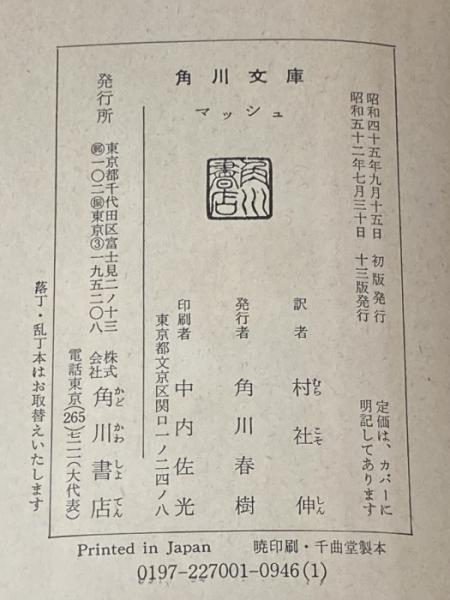 角川文庫
マッシュ
角川書店
昭和四十五年九月十五日 初版発行
昭和五十二年七月三十日 十三版発行
定価は、カバーに
明記してあります
訳者 村社伸
むら こそ しん
発行者 角川春樹
印刷者 中内佐光
東京都文京区関口一ノ二四ノ八
発行所
東京都千代田区富士見二ノ十三
㊞一〇二 振東京③一九五二〇八
株式会社 角川書店
かど かわ しょ てん
電話東京(265)七一一一(大代表)
落丁・乱丁本はお取替えいたします
Printed in Japan 暁印刷・千曲堂製本
0197-227001-0946(1)